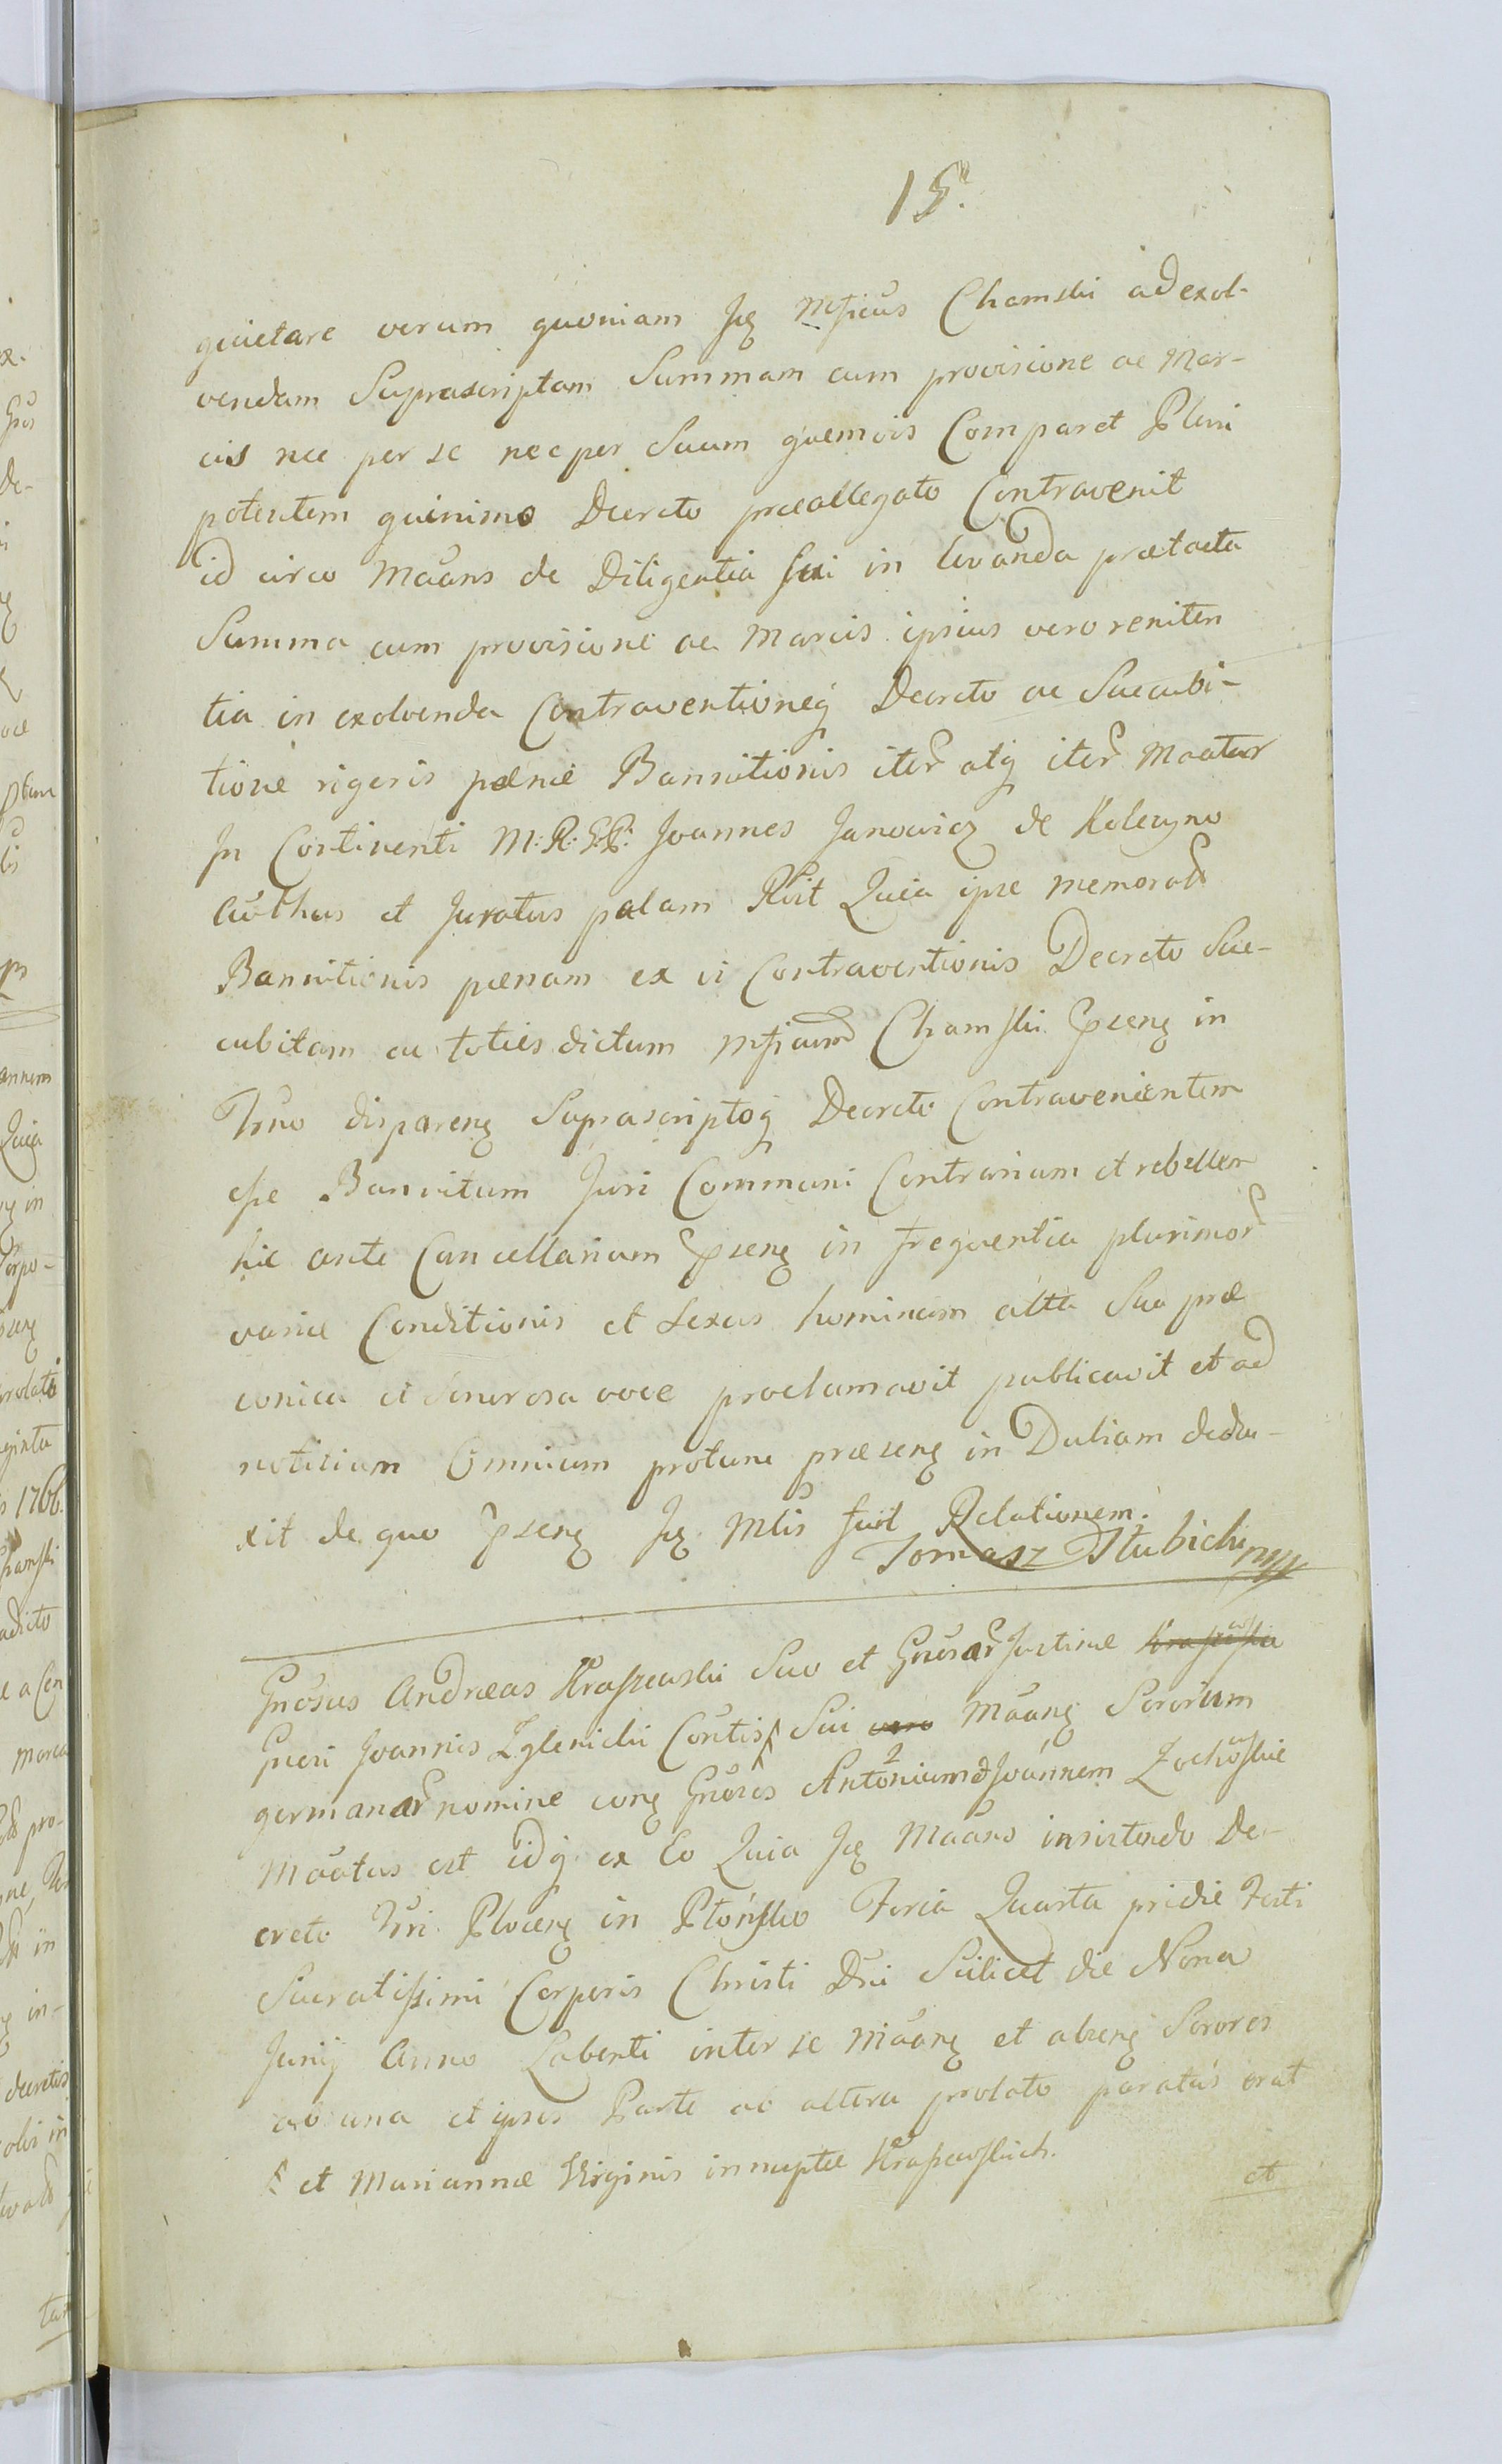 15.
quietare verum quoniam Jꝗ Mficus Chamski ad exol-
vendam Suprascriptam Summam cum provisione ac Mar-
cis nec per se nec per Suum quemvis Comparet Pleni
potentem quinimo Decreto præallegato Contravenit
id circo Mãans de Diligentia sui in levanda prætacta
Summa cum provisione ac Marcis ipsius vero reniten
tia in exolvenda Contraventioneq Decreto ac Succubi-
tione rigoris pænæ Bannitionis iter atq iter Maatur
In Continenti M: R: G: P: Joannes Janowicz de Koleczyno
Authus et Juratus palam Rlit Quia ipse memorat
Bannitionis pænam ex vi Contraventionis Decreto Suc-
cubitam ac toties dictum Mficum Chamski Psenꝗ in
Trno disparenꝗ Suprascriptoq Decreto Contravenientem
esse Bannitum Juri Communi Contrarium et rebellem
hic ante Cancellariam Psenꝗ in frequentia plurimor
variæ Conditionis et Sexus hominum alta Sua præ
conica et Sonorosa voce proclamavit publicavit et ad
notitiam Omnium protunc præsenꝗ in Dubiam dedu-
xit de quo Psenꝗ Jꝗ Mlis fuit Relationem.
Tomasz Dłubicki mp
Gnosus Andreas Kraszewski Suo et Gnosar Justinæ
Gnosi Joannis Zglenicki Contis Sui Mãanꝗ Sororum
germanar nomine conꝗ Gnosos Antonium 2 et Joannem Żochowskie
Mãatus est idq ex Eo Quia Jꝗ Mãans insistendo De-
creto Trri Plocenꝗ in Płońsko Feria Quarta pridie Festi
Sacratissimi Corporis Christi Dni Scilicet die Nona
Junij Anno Labenti inter se Mãanꝗ et absenꝗ Sorores
ab una et ipsos Parte ab altera prolato paratus erat
et Mariannæ Virginis innuptæ Kraszewskich.
et